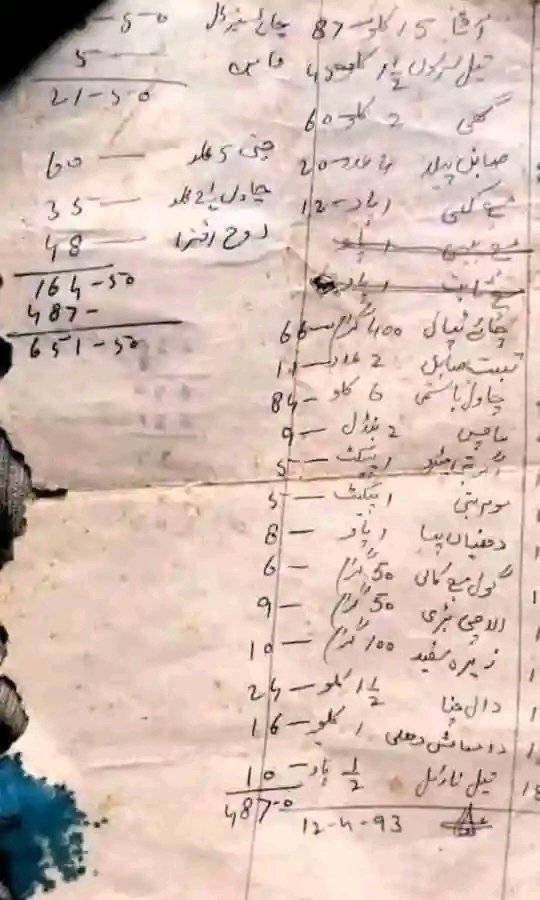 آٹا 15 کلو — 87
تیل سرسوں 1½ کلو — 45
گھی 2 کلو — 60
صابن پیلا 4 عدد — 20
مرچ کٹی 1 پاؤ — 12
چائے نیپالی 400 گرام — 66
تبت صابن 2 عدد — 11
چاول باسمتی 6 کلو — 84
ماچس 2 بنڈل — 9
اگربتی 1 پیکٹ — 5
موم بتی 1 پیکٹ — 5
دھنیاں پسا 1 پاؤ — 8
گول مرچ کالی 50 گرام — 6
الاچی بڑی 50 گرام — 9
زیرہ سفید 100 گرام — 10
دال چنا 1½ کلو — 24
دال ماش دھلی 1 کلو — 16
تیل ناریل ½ پاؤ — 10
487-0
12-4-93
5-50
5 —
21-50
چینی 5 کلو — 60
چاول 5 کلو — 35
روح افزا — 48
164-50
487-
651-50